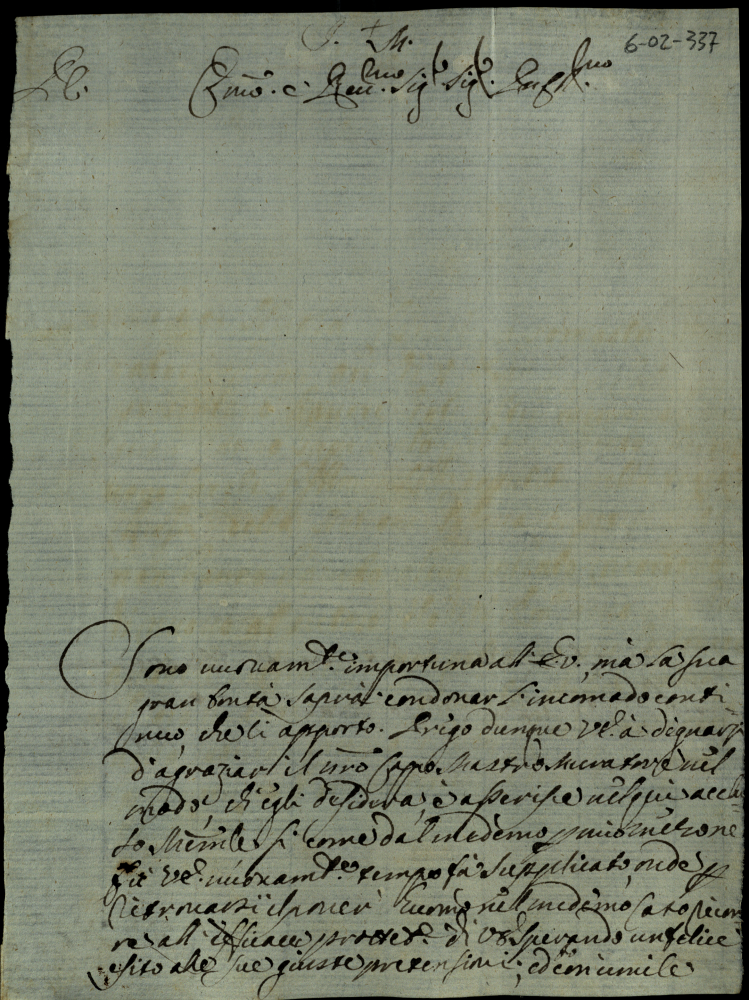 J. + M.
6-02-337
Emo. e Reu.mo Sig.r Sig.r
Sono nuouam.te importuna all' E.V. mà la sua
gran bontà saprai condonar l'incomado conti
nuo che li apporto. Prego dunque VE. à dignarsi
d'agraziar il nro Capo Mastro Muratore nel
modo ch'egli desidera è asserisse nel qui
Memle si come dal medemo
fù VE. nuouam.te tempo fà supplicato onde p
ritrouarsi il pouer Huomo nel medemo
re all' efficace protet.e di VE. sperando un felice
esito alle sue giuste pretensioni, ed in umile